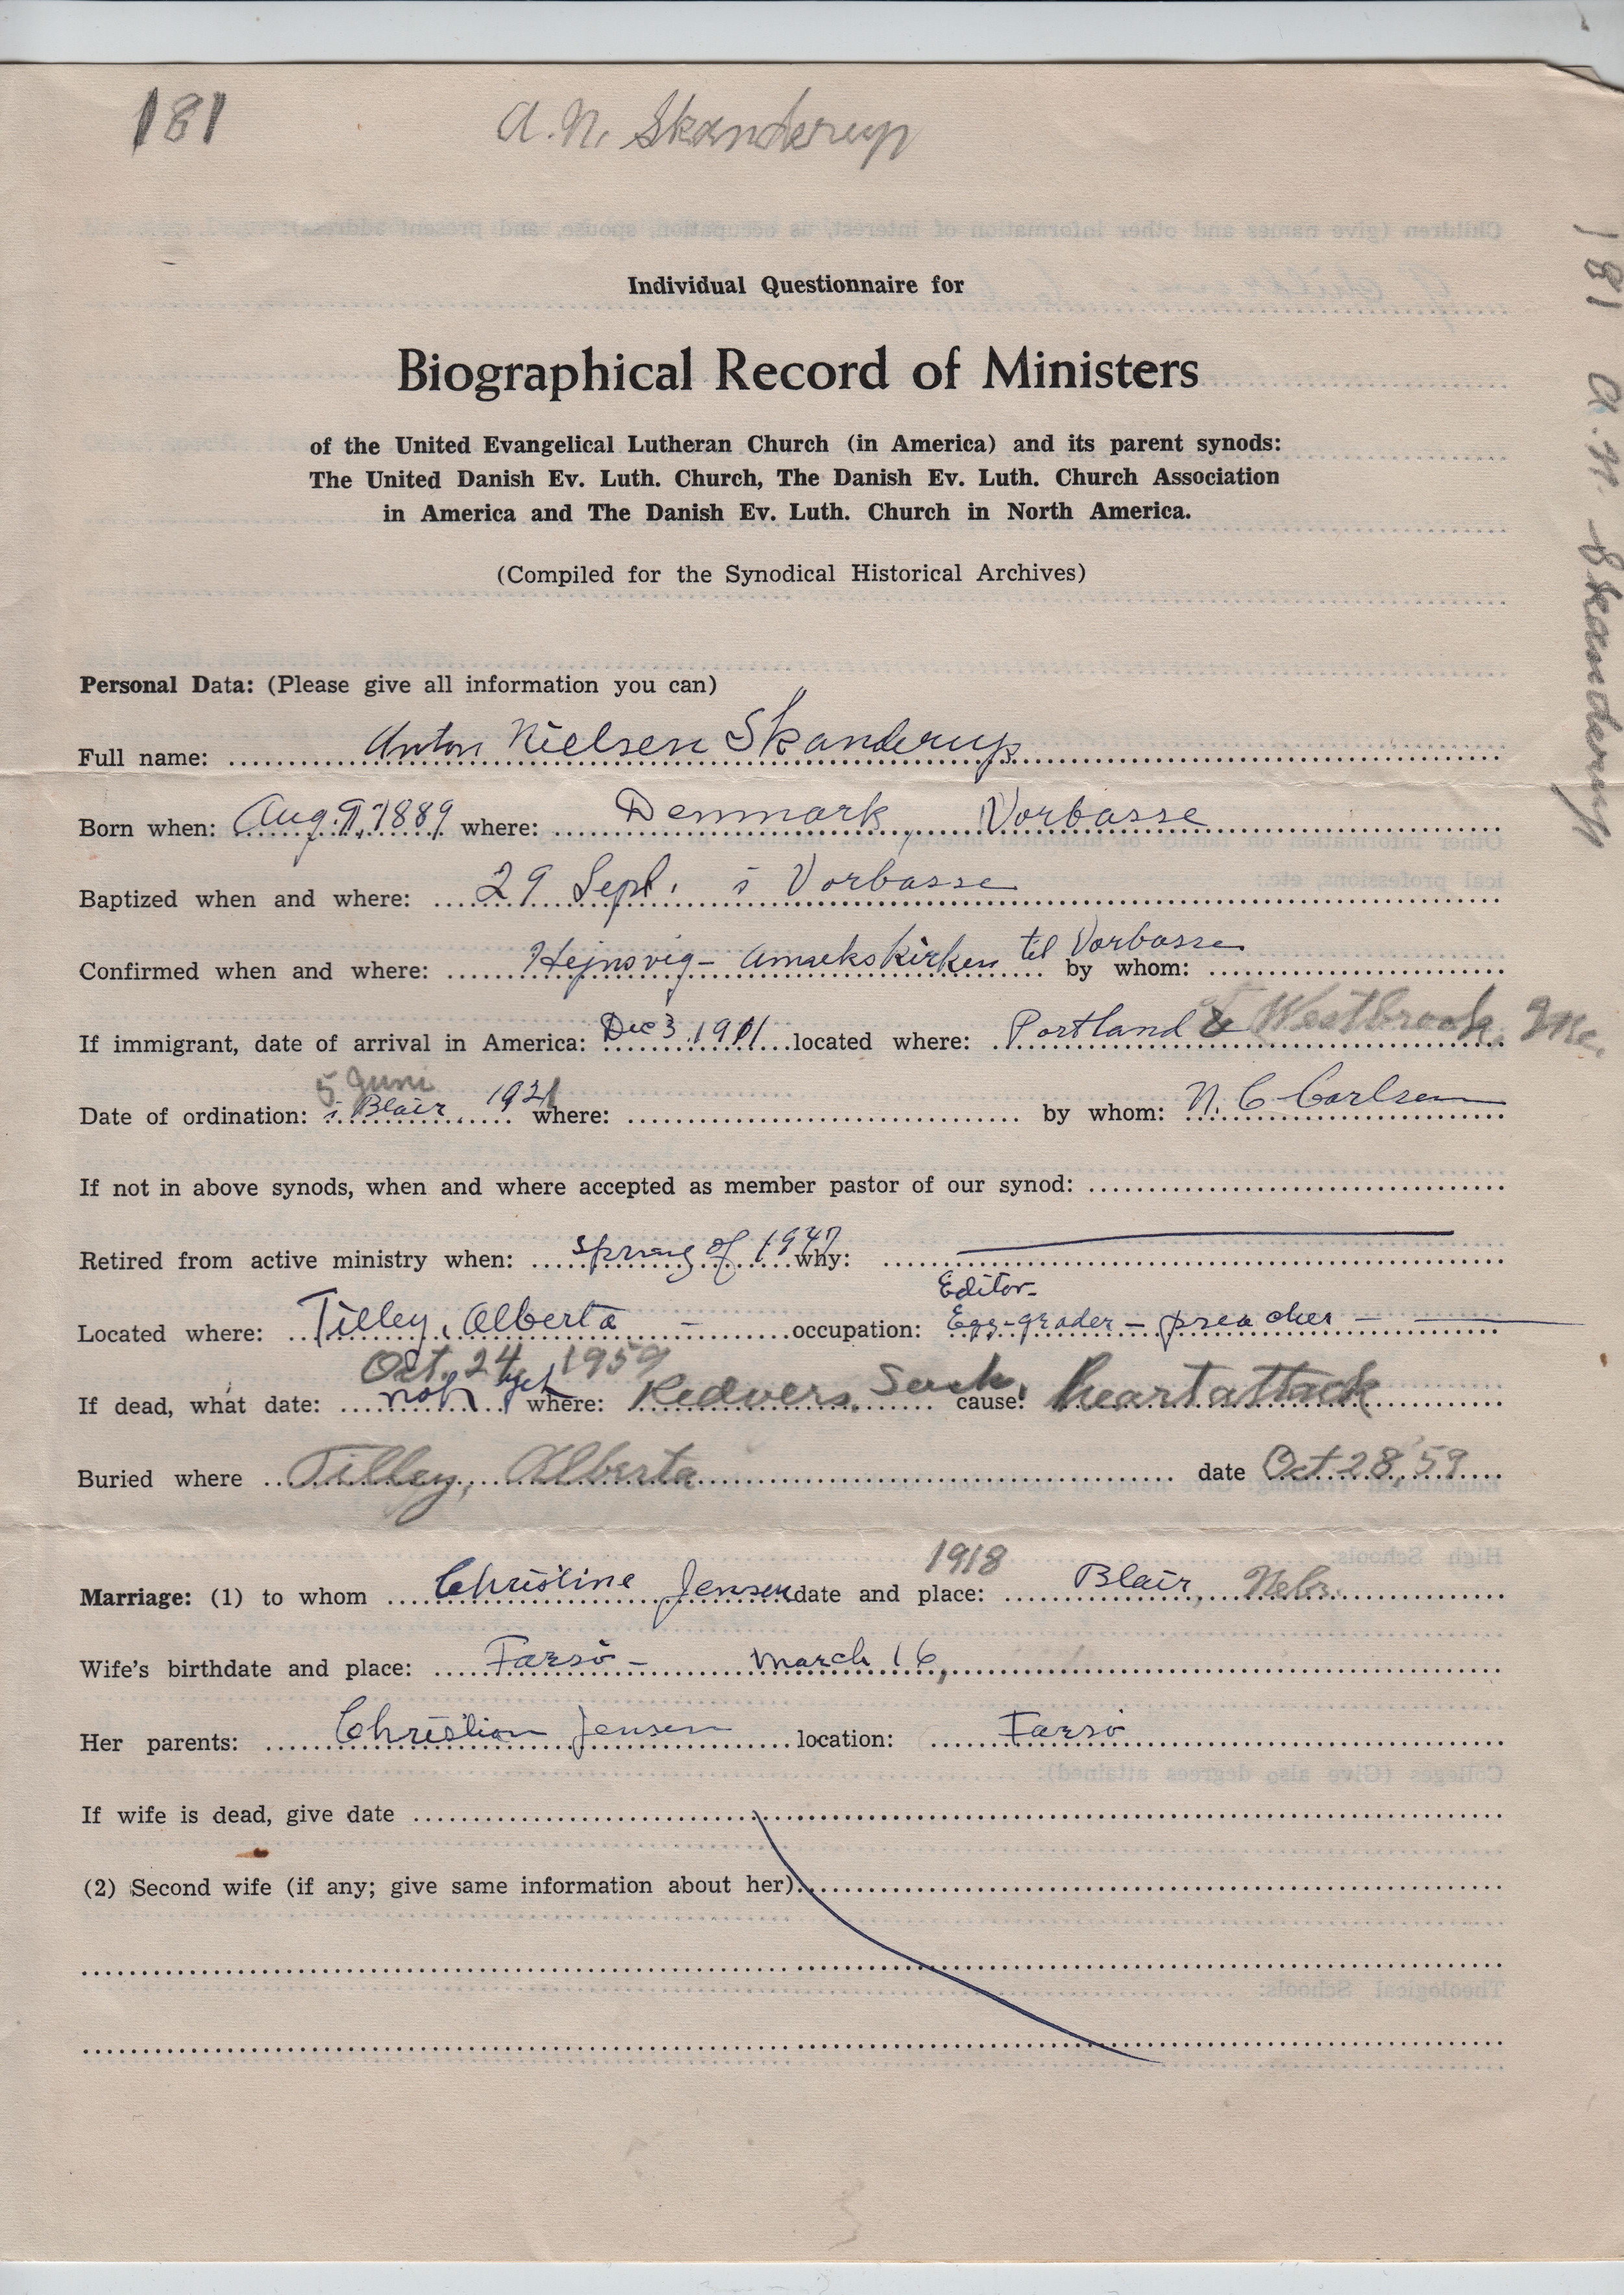 181 A. N. Skanderup
181 A. N. Skanderup
Individual Questionnaire for
Biographical Record of Ministers
of the United Evangelical Lutheran Church (in America) and its parent synods:
The United Danish Ev. Luth. Church, The Danish Ev. Luth. Church Association
in America and The Danish Ev. Luth. Church in North America.
(Compiled for the Synodical Historical Archives)
Personal Data: (Please give all information you can)
Full name: Anton Nielsen Skanderup
Born when: Aug. 9, 1889 where: Denmark, Vorbasse
Baptized when and where: 29 Sept. i Vorbasse
Confirmed when and where: Hejnsvig - Annekskirken til Vorbasse by whom:
If immigrant, date of arrival in America: Dec 3 1911 located where: Portland & Westbrook, Me.
5 Juni
Date of ordination: i Blair 1921 where: by whom: N. C. Carlsen
If not in above synods, when and where accepted as member pastor of our synod:
Retired from active ministry when: spring of 1947 why:
Editor-
Located where: Tilley, Alberta - occupation: Egg-grader - preacher -
Oct. 24, 1959
If dead, what date: not yet where: Redvers, Sask. cause: heart attack
Buried where Tilley, Alberta date Oct 28, 59
1918
Marriage: (1) to whom Christine Jensen date and place: Blair, Nebr.
Wife's birthdate and place: Farsö - March 16,
Her parents: Christian Jensen location: Farsö
If wife is dead, give date
(2) Second wife (if any; give same information about her)